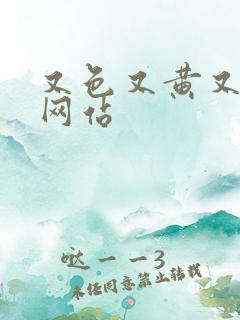 又色又黄又
网站
哒一一3
未经同意禁止转载